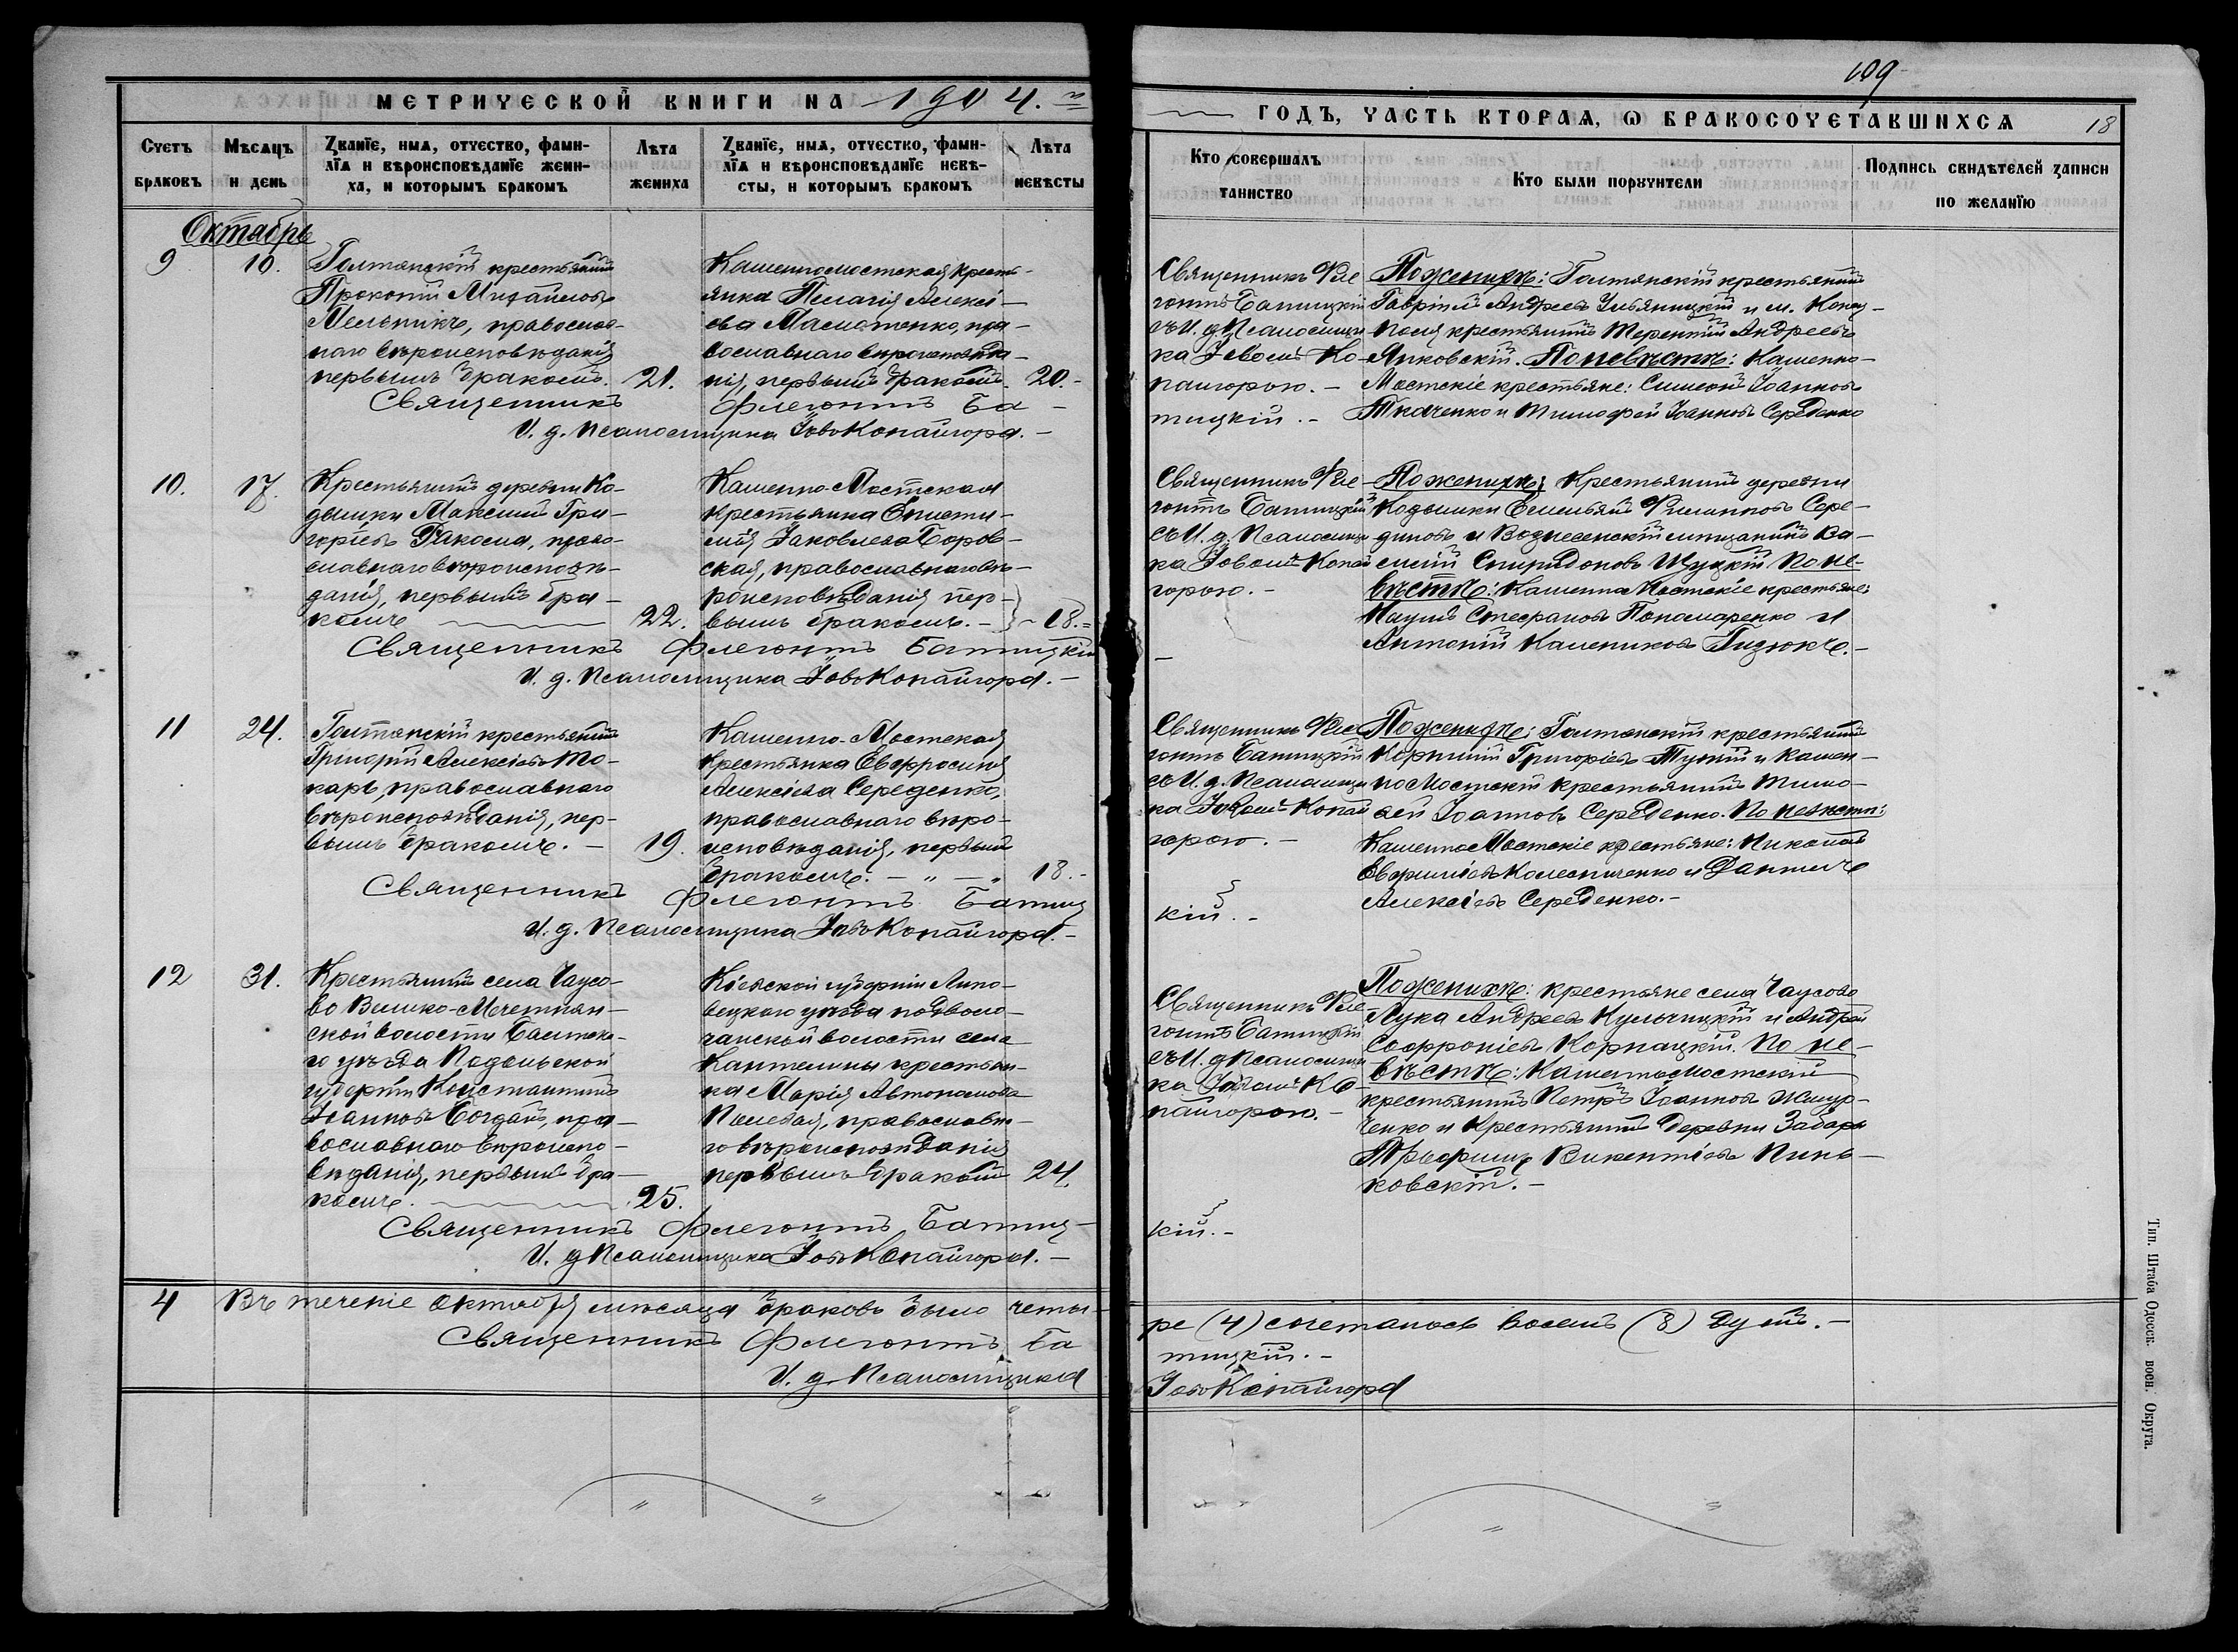 109
МЕТРИЧЕСКОЙ КНИГИ НА 1904.й
ГОДЪ, ЧАСТЬ ВТОРАЯ, Ѡ БРАКОСОЧЕТАВШИХСЯ
18
Счетъ браковъ
Мѣсяцъ и день
Званіе, имя, отчество, фамилія и вѣроисповѣданіе жениха, и которымъ бракомъ
Лѣта жениха
Званіе, имя, отчество, фамилія и вѣроисповѣданіе невѣсты, и которымъ бракомъ
Лѣта невѣсты
Кто совершалъ таинство
Кто были поручители
Подпись свидѣтелей записи по желанію
Октябрь
9
10.
Голтянскій крестьянинъ
Прокопій Михайловъ
Мельникъ, православ-
наго вѣроисповѣданія
первымъ бракомъ.
21.
Каменномостская кресть-
янка Пелагія Алексі-
ева Маслотенко, пра-
вославнаго вѣроисповѣда-
нія, первымъ бракомъ.
20.-
Священникъ Фле
гонтъ Батицкій
съ И. д. Псаломщи
ка Іовомъ Ко-
пайгорою.-
По женихѣ: Голтянскій крестьянинъ
Гавріилъ Андреевъ Ульяницкій и м. Конец-
поля крестьянинъ Терентій Андреевъ
Янковскій. По невѣстѣ: Каменно-
Мостскіе крестьяне: Симеонъ Іоанновъ
Ткаченко и Тимофей Іоанновъ Середенко
Священникъ Флегонтъ Ба-
тицкій.-
И. д. Псаломщика Іовъ Копайгора.-
10.
17.
Крестьянинъ деревни Ко-
дымки Максимъ Гри-
горіевъ Ракома, право-
славнаго вѣроисповѣ-
данія, первымъ бра-
комъ
22.
Каменно-Мостская
крестьянка Еписти-
мія Іаковлева Боров-
ская, православнаго вѣ-
роисповѣданія пер-
вымъ бракомъ.-
18.-
Священникъ Фле-
гонтъ Батицкій
съ И. д. Псаломщи
ка Іовомъ Копай
горою.-
По женихѣ: Крестьянинъ деревни
Кодымки Емельянъ Филипповъ Сере-
диновъ и Вознесенскій мѣщанинъ Ва-
силій Спиридоновъ Щуцкій По не-
вѣстѣ: Каменно Мостскіе крестьяне:
Наумъ Стефановъ Пономаренко и
Антоній Калениковъ Гизюкъ.-
Священникъ Флегонтъ Батицкій
И. д. Псаломщика Іовъ Копайгора.-
11
24.
Голтянскій крестьянинъ
Григорій Алексіевъ То-
карь, православнаго
вѣроисповѣданія, пер-
вымъ бракомъ.-
19.
Каменно-Мостская
крестьянка Евфросинія
Алексіева Середенко,
православнаго вѣро-
исповѣданія, первымъ
бракомъ.
18.-
Священникъ Фле
гонтъ Батицкій
съ И. д. Псаломщи
ка Іовомъ Копай
горою.-
По женихѣ: Голтянскій крестьянинъ
Корнилій Григоріевъ Тупій и Камен-
но Мостскій крестьянинъ Тимо-
фей Іоанновъ Середенко. По невѣстѣ:
Каменно Мостскіе крестьяне: Николай
Евфиміевъ Колесниченко и Даніилъ
Алексіевъ Середенко.-
Священникъ Флегонтъ Батиц
кій.-
И. д. Псаломщика Іовъ Копайгора.-
12
31.
Крестьянинъ села Чаусо-
во Велико-Мечетнян-
ской волости Балтска-
го уѣзда Подольской
губерніи Константинъ
Іоанновъ Богданъ, пра-
вославнаго вѣроиспо-
вѣданія, первымъ бра-
комъ.
25.
Кіевской губерніи Липо-
вецкаго уѣзда подвысо-
чанской волости села
Кантелины крестьян-
ка Марія Автономова
Полевая, православна-
го вѣроисповѣданія
первымъ бракомъ
24.
Священникъ Фле-
гонтъ Батицкій
съ И. д. Псаломщи
ка Іовомъ Ко-
пайгорою.-
По женихѣ: крестьяне села Чаусово
Лука Андреевъ Кульчицкій и Андрей
Софроніевъ Корпацкій. По не-
вѣстѣ: Каменномостскій
крестьянинъ Петръ Іоанновъ
и Крестьянинъ деревни Забары
Трофимъ Викентіевъ Пинь-
ковскій.-
Священникъ Флегонтъ Батиц-
кій.-
И. д. Псаломщика Іовъ Копайгора.-
4
Въ теченіе октября мѣсяца браковъ было четы-
ре (4) сочеталось восемь (8) душъ.-
Священникъ Флегонтъ Ба
тицкій.-
И. д. Псаломщика
Іовъ Копайгора
Тип. Штаба Одесск. воен. Округа.